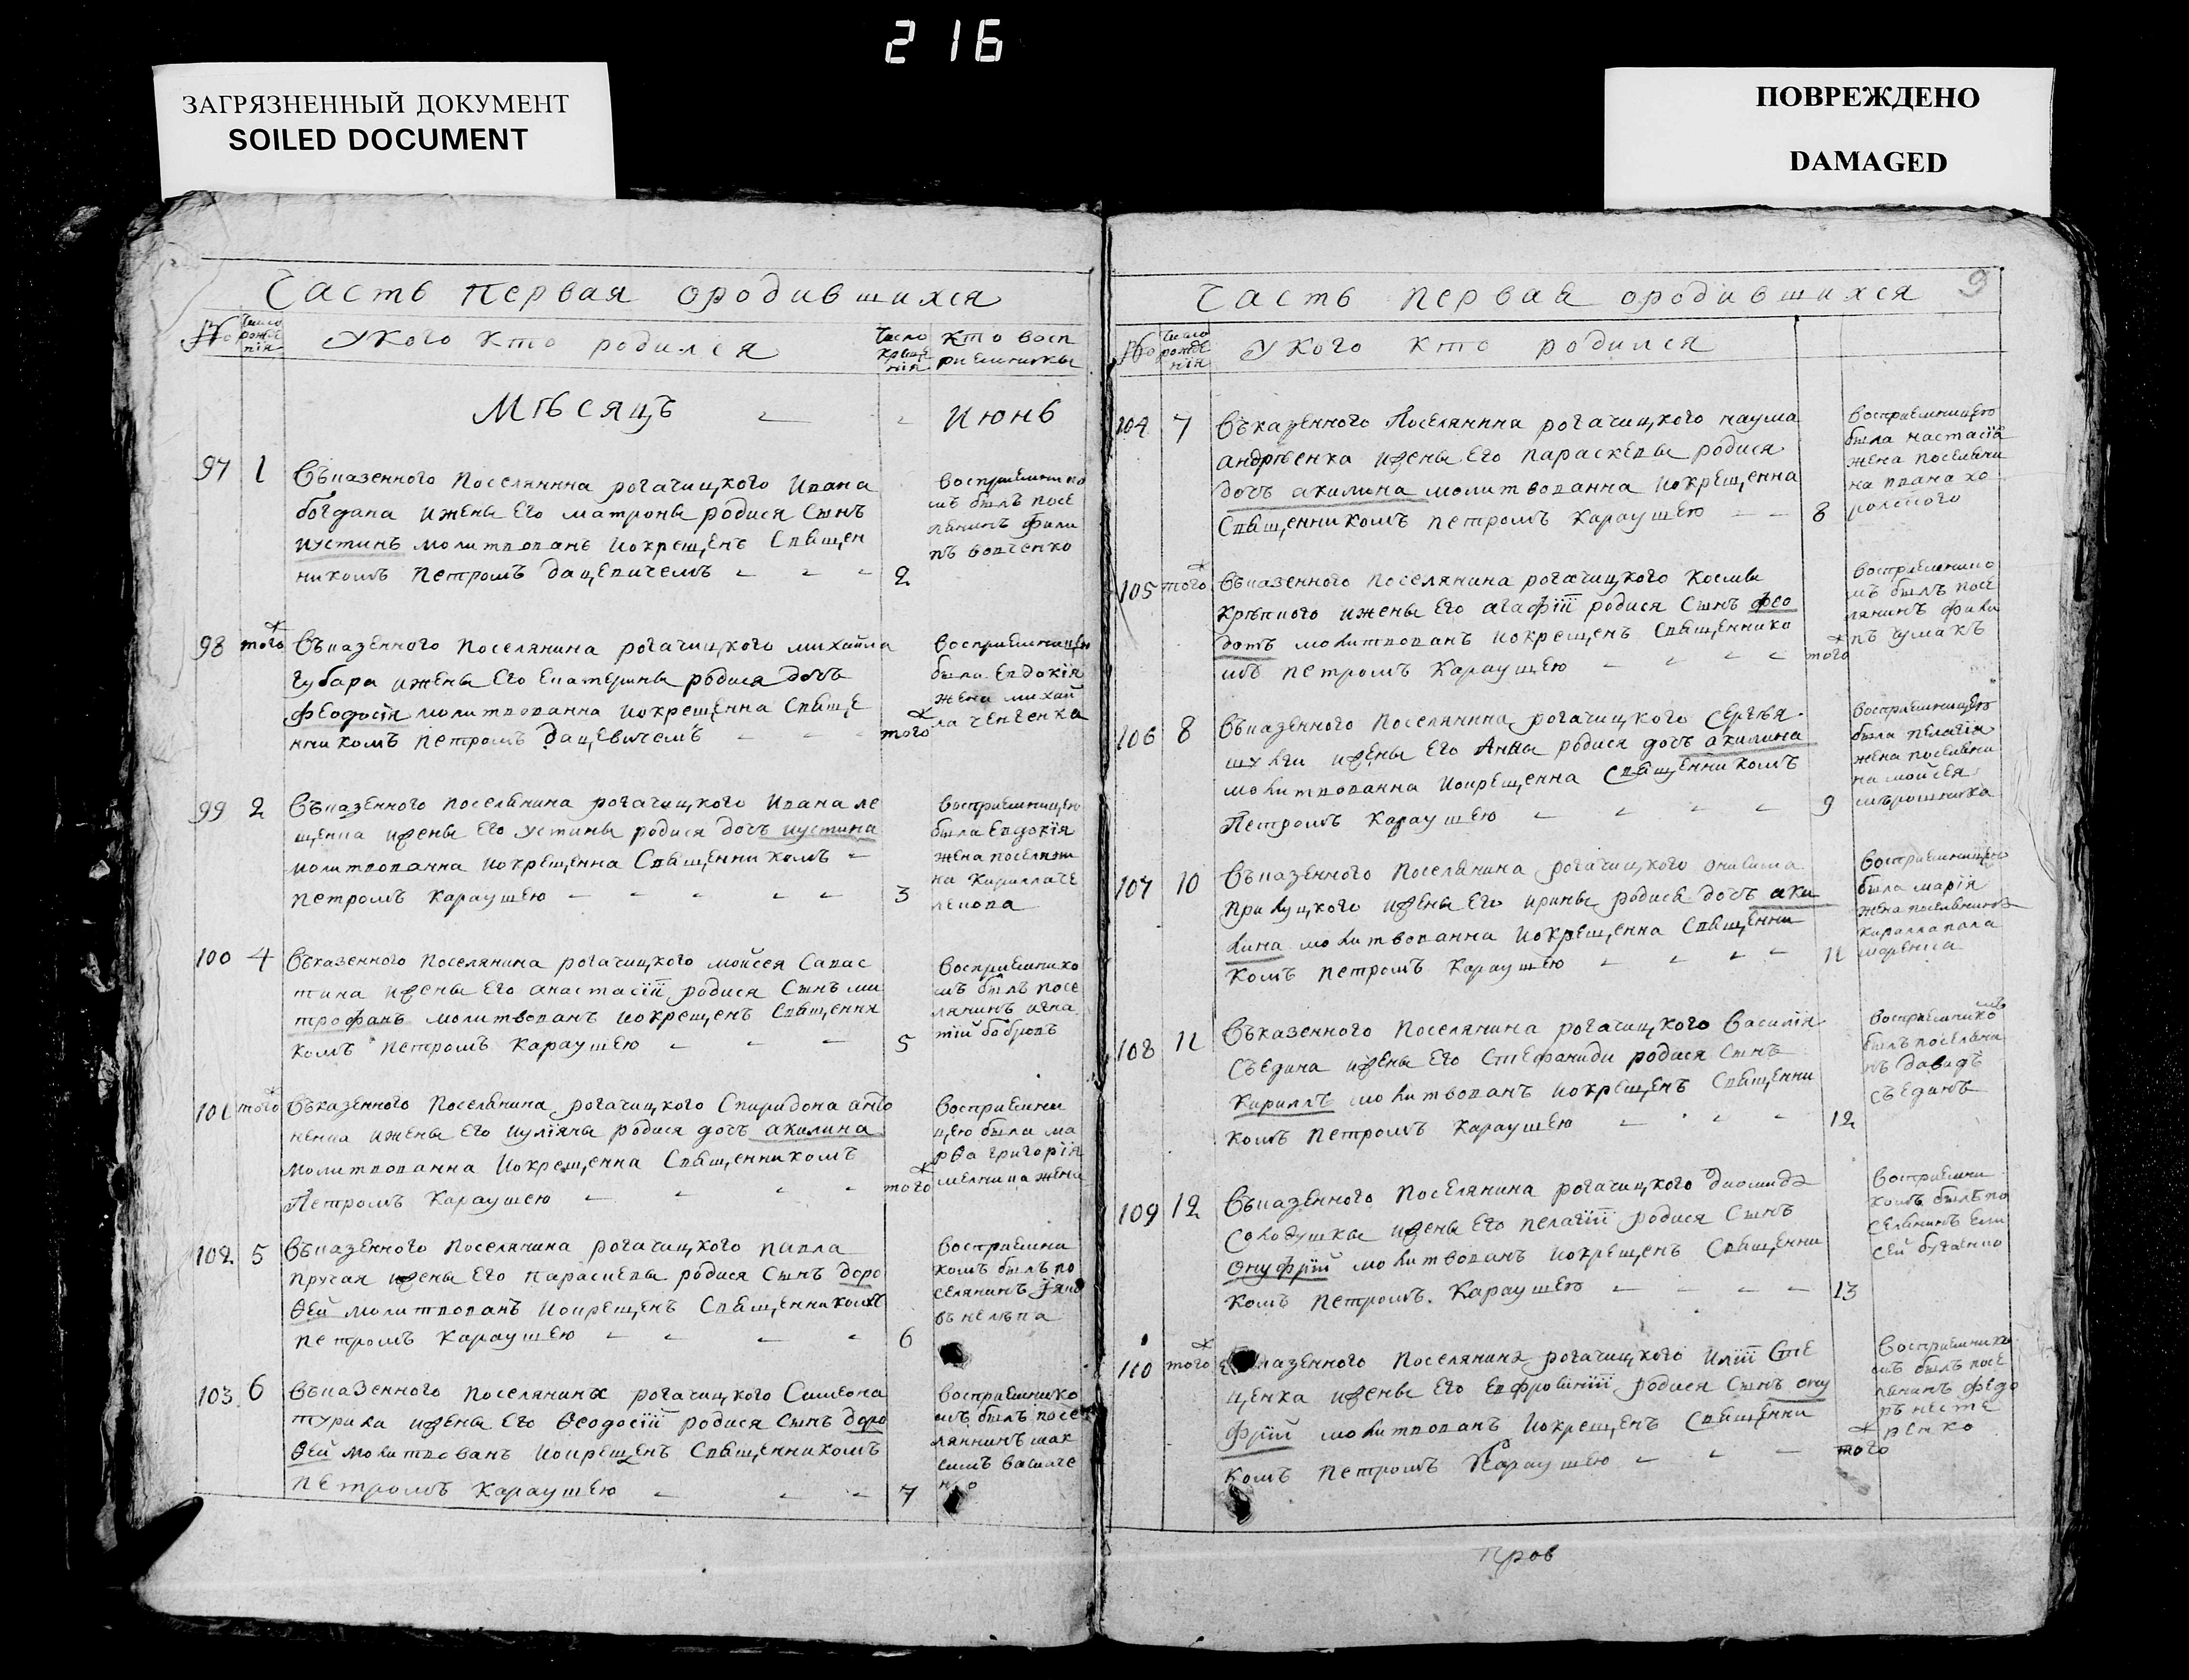 216
ЗАГРЯЗНЕННЫЙ ДОКУМЕНТ
SOILED DOCUMENT
ПОВРЕЖДЕНО
DAMAGED
Часть первая ородившихся
№ Число рожде нія
Укого кто родился
Число креще нія
Кто восп риемники
Мѣсяцъ Июнь
97 1 Въказенного поселянина рогачицкого ивана
богдана ижены его матроны родися сынъ
иустинъ молитвованъ иокрещенъ священ
никомъ петромъ дацевичемъ 2
восприемнико
мъ былъ посе
лянинъ фили
пъ вовченко
98 того Въказенного поселянина рогачицкого михайла
губара ижены его екатерины родися дочь
феодосія молитвованна иокрещенна священ
никомъ петромъ дацевичемъ того
восприемницею
была евдокія
жена михай
ла ченченка
99 2 Въказенного поселянина рогачицкого ивана ле
щенка ижены его устины родися дочь иустина
молитвованна иокрещенна священникомъ
петромъ Караушею 3
восприемницею
была евдокія
жена поселяни
на кирилла че
100 4 Въказенного поселянина рогачицкого мойсея савас
тина ижены его анастасіїі родися сынъ ми
трофанъ молитвованъ иокрещенъ священни
комъ петромъ Караушею 5
восприемнико
мъ былъ посе
лянинъ игна
тій бобровъ
101 того Въказенного поселянина рогачицкого спиридона анто
ненка ижены его иуліяны родися дочь акилина
молитвованна иокрещенна священникомъ
Петромъ Караушею того
восприемни
цею была ма
рѳа григорія
жена
102 5 Въказенного поселянина рогачицкого павла
пругая ижены его параскевы родися сынъ доро
ѳей молитвованъ иокрещенъ священникомъ
петромъ Караушею 6
восприемни
комъ былъ по
селянинъ
103 6 Въказенного поселянина рогачицкого симеона
турила ижены его ѳеодосіїі родися сынъ доро
ѳей молитвованъ иокрещенъ священникомъ
петромъ Караушею 7
восприемнико
мъ былъ посе
лянинъ мак
симъ
Часть первая ородившихся 9
№ Число рожде нія
Укого кто родился
104 7 Въказенного поселянина рогачицкого наума
андрѣенка ижены его параскевы родися
дочь акилина молитвованна иокрещенна
священникомъ петромъ Караушею 8
восприемницею
была настасія
жена поселяни
на ивана ко
ролевого
105 того Въказенного поселянина рогачицкого космы
крѣпкого ижены его агафіїі родися сынъ фео
дотъ молитвованъ иокрещенъ священнико
мъ петромъ Караушею того
восприемнико
мъ былъ посе
лянинъ фили
пъ чумакъ
106 8 Въказенного поселянина рогачицкого сергѣя
шулги ижены его Анны родися дочь акилина
молитвованна иокрещенна священникомъ
Петромъ Караушею 9
восприемницею
была пелагія
жена поселяни
на мойсея
мѣрошника
107 10 Въказенного поселянина рогачицкого онисима
прилуцкого ижены его ирины родися дочь аки
лина молитвованна иокрещенна священни
комъ петромъ Караушею 11
восприемницею
была марія
жена поселянина
кирилла пала
маренка
108 11 Въказенного поселянина рогачицкого Василія
съедина ижены его стефаниди родися сынъ
кириллъ молитвованъ иокрещенъ священни
комъ петромъ Караушею 12
восприемникомъ
былъ поселяни
нъ давидъ
съединъ
109 12 Въказенного поселянина рогачицкого диомида
солодушки ижены его пелагіїі родися сынъ
онуфрій молитвованъ иокрещенъ священни
комъ петромъ Караушею 13
восприемни
комъ былъ по
селянинъ ели
сей бугаенко
110 того Въказенного поселянина рогачицкого иліїі сте
ценка ижены его евфросиніїі родися сынъ ону
фрій молитвованъ иокрещенъ священни
комъ петромъ Караушею того
восприемнико
мъ былъ посе
лянинъ федо
ръ несте
ренко
Пров